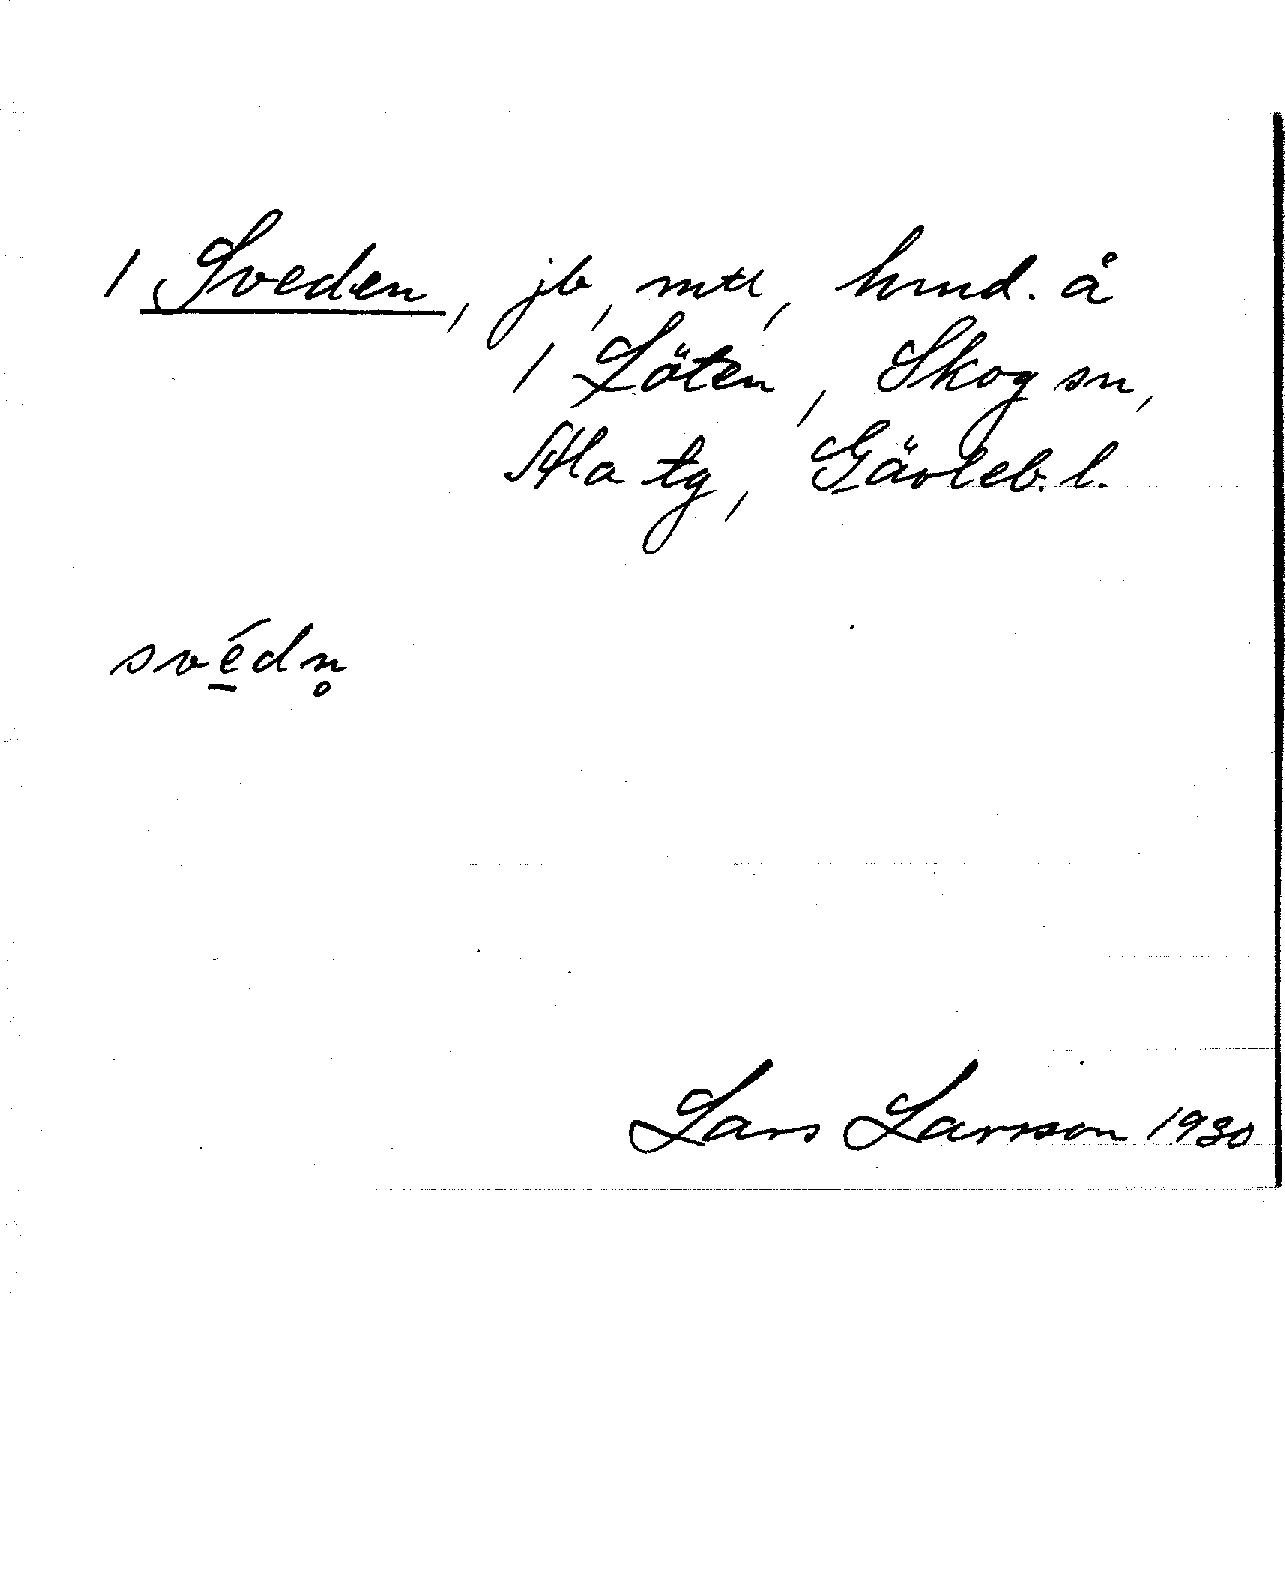 1 Sveden, jb, mtl, hmd. å
1 Löten, Skog sn,
Ala tg, Gävleb. l.
svédn̥
Lars Larsson 1930